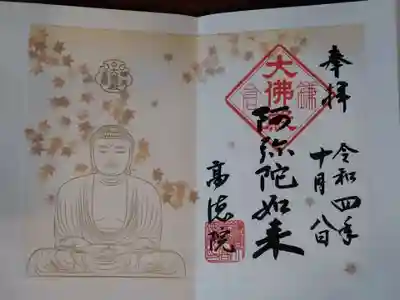 奉拝
令和四年
十月八日
大佛殿
阿弥陀如来
高徳院